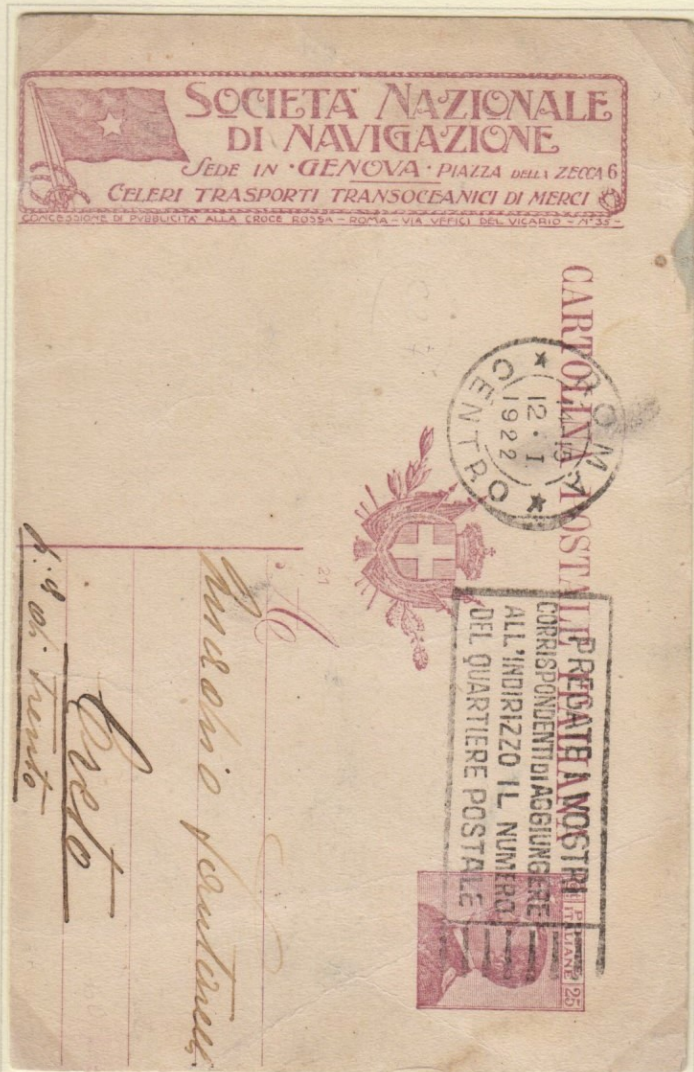 SOCIETÀ NAZIONALE
DI NAVIGAZIONE
SEDE IN · GENOVA · PIAZZA DELLA ZECCA 6
CELERI TRASPORTI TRANSOCEANICI DI MERCI
CONCESSIONE DI PUBBLICITÀ ALLA CROCE ROSSA - ROMA - VIA VFFICI DEL VICARIO - N° 35 -
CARTOLINA POSTALE ITALIANA
ROMA
15
12 · I
1922
CENTRO
PREGATE I VOSTRI
CORRISPONDENTI DI AGGIUNGERE
ALL'INDIRIZZO IL NUMERO
DEL QUARTIERE POSTALE
POSTE
ITALIANE 25
21
A
Creto
di Trento